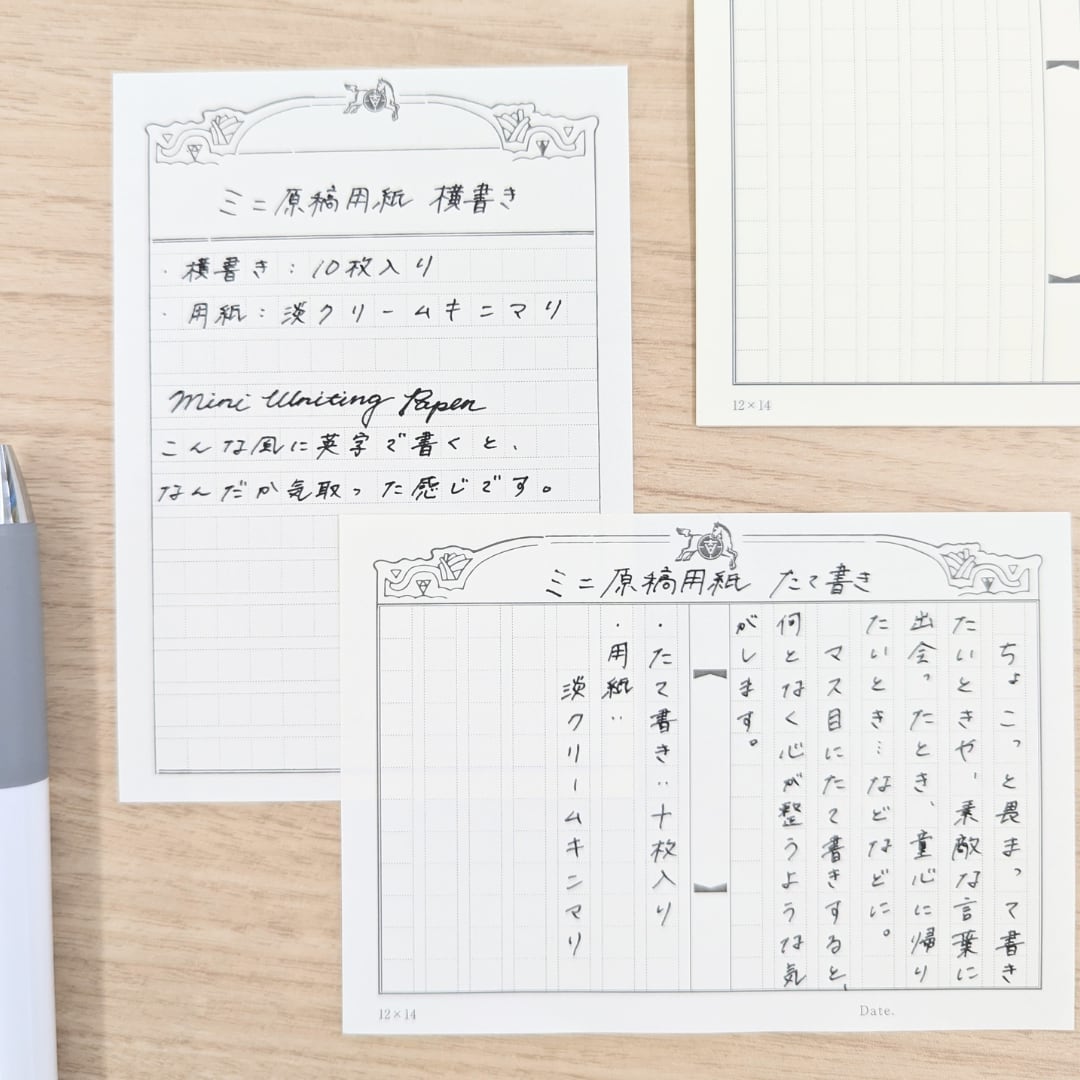 ミニ原稿用紙 横書き
・横書き：10枚入り
・用紙：淡クリームキンマリ
Mini Writing Paper
こんな風に英字で書くと、
なんだか気取った感じです。
12×14
ミニ原稿用紙 たて書き
ちょこっと畏まって書き
たいときや、素敵な言葉に
出会ったとき、童心に帰り
たいとき…などなどに。
マス目にたて書きすると、
何となく心が整うような気
がします。
・たて書き：十枚入り
・用紙：
淡クリームキンマリ
12×14
Date.